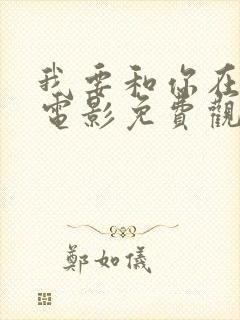 我要和你在
電影免費觀
鄭如儀